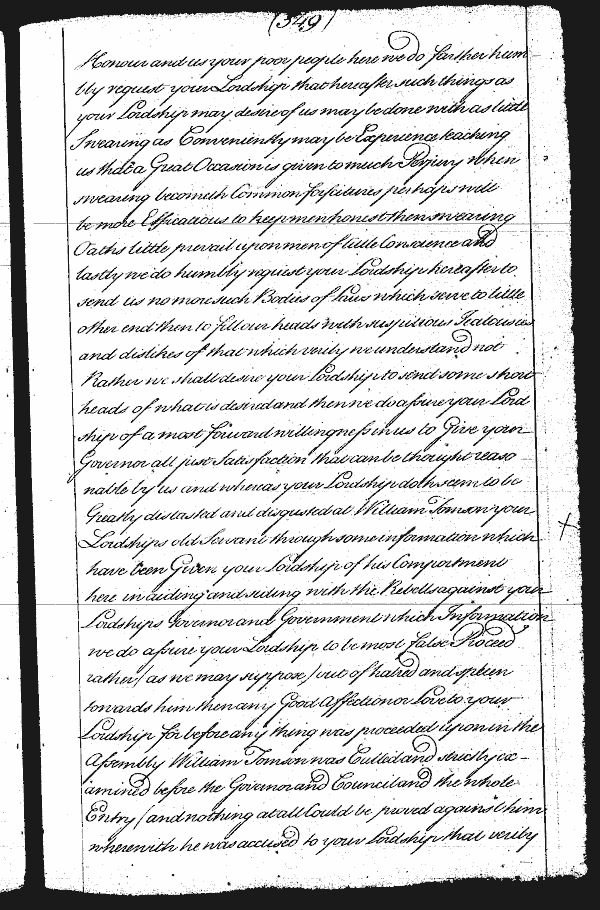 (349)
Honour and us your poor people here we do farther hum
bly request your Lordship that hereafter such things as
your Lordship may desire of us may be done with as little
Swearing as Conveniently may be Experience teaching
us that a Great Occasion is given to much Perjury when
swearing becometh Common forfeitures perhaps will
be more Efficatious to keep men honest then swearing
Oaths little prevail upon men of little Conscience and
lastly we do humbly request your Lordship hereafter to
send us no more such Bodies of Laws which serve to little
other end then to fill our heads with suspitious Jealousies
and dislikes of that which verily we understand not
Rather we shall desire your Lordship to send some short
heads of what is desired and then we do assure your Lord
ship of a most forward willingness in us to Give your
Governor all just Satisfaction that can be thought reaso
nable by us and whereas your Lordship doth seem to be
Greatly distasted and disgusted at William Tomson your
Lordships old Servant through some information which
have been Given your Lordship of his Comportment
here in aiding and siding with the Rebells against your
Lordships Governor and Government which Information
we do assure your Lordship to be most false Proceed
rather (as we may suppose) out of hatred and spleen
towards him then any Good Affection or Love to your
Lordship for before any thing was proceeded upon in the
Assembly William Tomson was Called and strictly ex-
amined before the Governor and Council and the whole
Entry (and nothing at all Could be proved against him
wherewith he was accused to your Lordship that verily